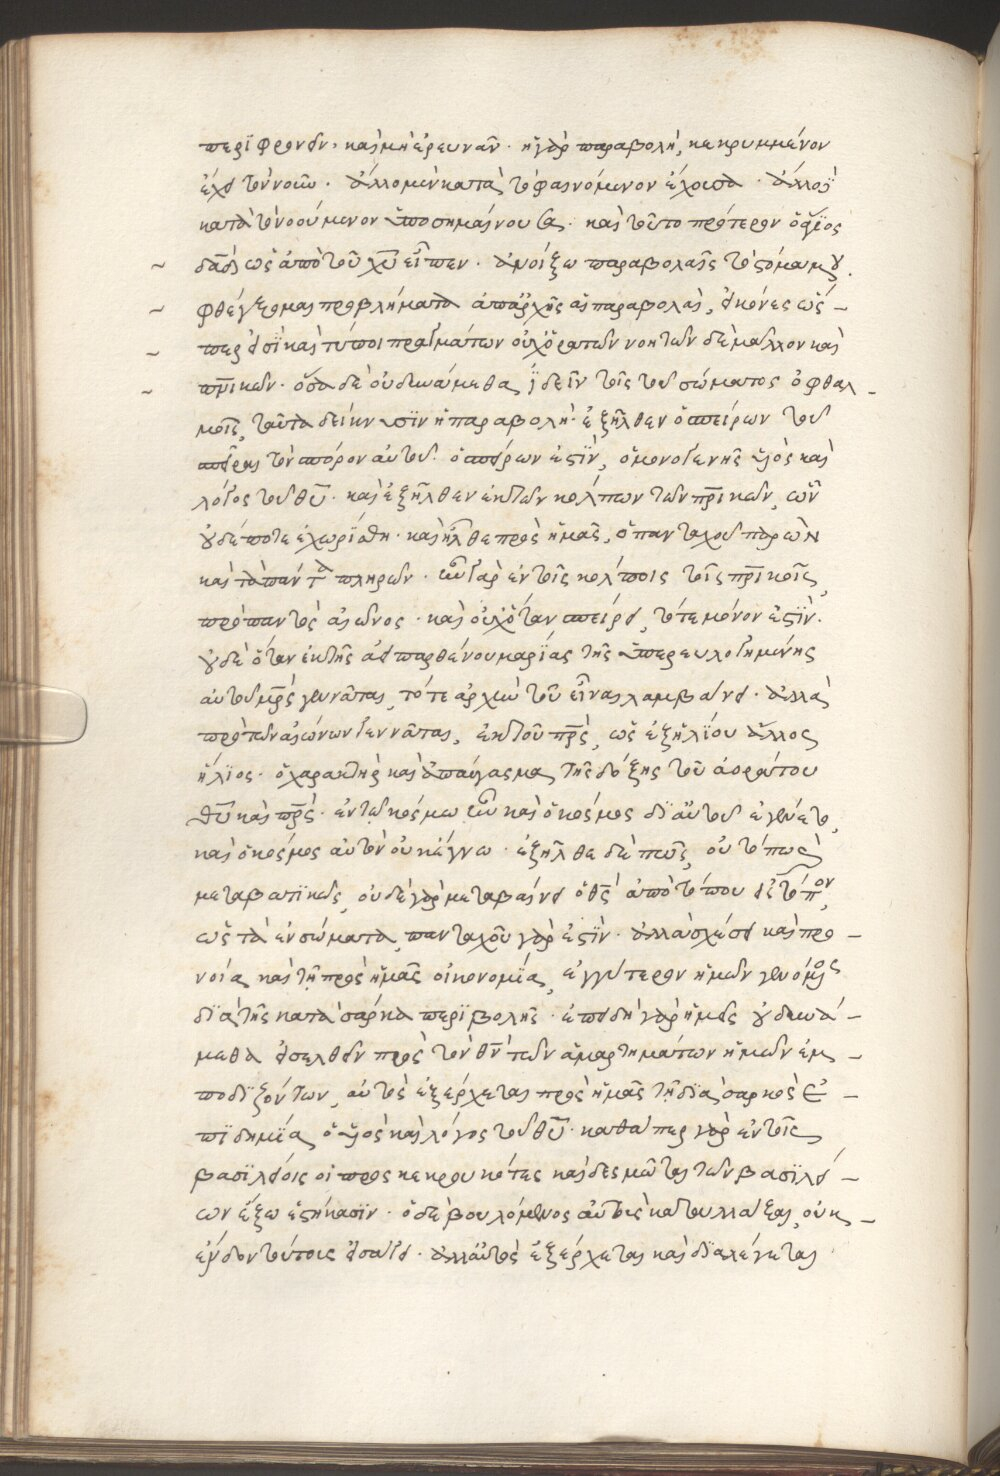 περιφρονεῖν· καὶ μὴ ἐρευνᾶν· ἡ γὰρ παραβολὴ, κεκρυμμένον
ἔχει τὸν νοῦν· ἄλλο μὲν κατὰ τὸ φαινόμενον ἔχουσα· ἄλλο δὲ
κατὰ τὸ νοούμενον ὑποσημαίνουσα· καὶ τοῦτο πρότερον ὁ ἅγιος
δᾱδ ὡς ἀπὸ τοῦ χῡ εἶπεν· ἀνοίξω παραβολαῖς τὸ στόμα μου.
φθέγξομαι προβλήματα ἀπαρχῆς αἱ παραβολαὶ, εἰκόνες ὥσ–
περ εἰσὶ καὶ τύποι πραγμάτων οὐχ ὁρατῶν νοητῶν δὲ μᾶλλον καὶ
πν̅ικῶν· ὅσα δὲ οὐ δυνάμεθα ἰδεῖν τοῖς τοῦ σώματος ὀφθαλ–
μοῖς, ταῦτα δείκνυσιν ἡ παραβολή· ἐξῆλθεν ὁ σπείρων τοῦ
σπεῖραι τὸν σπόρον αὐτοῦ· ὁ σπείρων ἐστὶν, ὁ μονογενὴς υἱὸς καὶ
λόγος τοῦ θῡ· καὶ ἐξῆλθεν ἐκ τῶν κόλπων τῶν πρ̅ικῶν, ὧν
οὐδέποτε ἐχωρίσθη· καὶ ἦλθε πρὸς ἡμᾶς, ὁ πανταχοῦ παρὼν
καὶ τὰ πάντα πληρῶν· ἦν γὰρ ἐν τοῖς κόλποις τοῖς πρ̅ικοῖς,
πρὸ παντὸς αἰῶνος· καὶ οὐχ ὅταν σπείρει, τότε μόνον ἐστὶν·
οὐδὲ ὅταν ἐκ τῆς ἀειπαρθένου μαρίας τῆς ὑπερευλογημένης
αὐτοῦ μρ̅ς γεννᾶται, τότε ἀρχὴν τοῦ εἶναι λαμβάνει· ἀλλὰ
πρὸ τῶν αἰώνων γεννᾶται, ἐκ τοῦ πρ̅ς, ὡς ἐξ ἡλίου ἄλλος
ἥλιος· ὁ χαρακτὴρ καὶ ἀπαύγασμα τῆς δόξης τοῦ ἀοράτου
θῡ καὶ πρ̅ς· ἐν τῷ κόσμῳ ἦν καὶ ὁ κόσμος δι᾽ αὐτοῦ ἐγένετο,
καὶ ὁ κόσμος αὐτὸν οὐκ ἔγνω· ἐξῆλθε δὲ πῶς, οὐ τόπῳ
μεταβατικῶς, οὐδὲ γὰρ μεταβαίνει ὁ θς̅ ἀπὸ τόπου εἰς τόπον,
ὡς τὰ ἐν σώματα, πανταχοῦ γὰρ ἐστίν· ἀλλὰ σχέσει καὶ προ–
νοία καὶ τῇ πρὸς ἡμᾶς οἰκονομία, ἐγγύτερον ἡμῶν γενόμενος
διὰ τῆς κατὰ σάρκα περιβολῆς· ἐπειδὴ γὰρ ἡμεῖς οὐ δυνά–
μεθα εἰσελθεῖν πρὸς τὸν θν̅ τῶν ἁμαρτημάτων ἡμῶν ἐμ–
ποδιζόντων, αὐτὸς ἐξέρχεται πρὸς ἡμᾶς τῇ διὰ σαρκὸς ἐ–
πιδημία, ὁ υἱὸς καὶ λόγος τοῦ θῡ· καθάπερ γὰρ ἐν τοῖς
βασιλείοις οἱ προσκεκρουκότες καὶ δεσμῶται τῶν βασιλεί–
ων ἔξω ἑστήκασιν· ὁ δὲ βουλόμενος αὐτοῖς καταλλάξαι, οὐκ–
ἔνδον τούτοις εἰσάγει· ἀλλ᾽ αὐτὸς ἐξέρχεται καὶ διαλέγεται